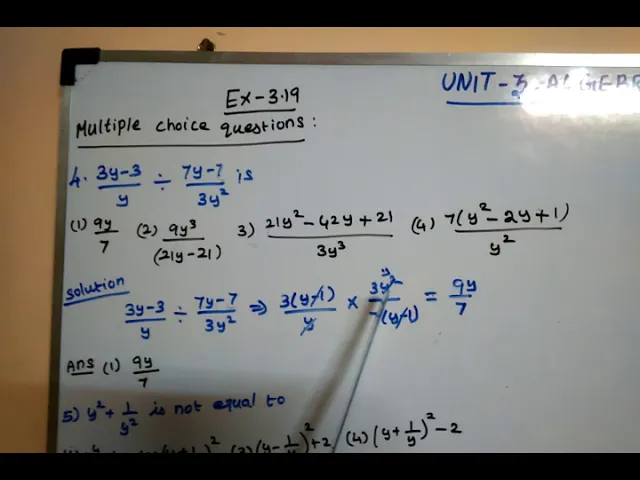 UNIT-3 ALGEBR
Ex-3.19
Multiple choice questions:
4. (3y-3)/y ÷ (7y-7)/3y² is
(1) 9y/7 (2) 9y³/(21y-21) 3) (21y²-42y+21)/3y³ (4) 7(y²-2y+1)/y²
Solution
(3y-3)/y ÷ (7y-7)/3y² ⇒ 3(y-1)/y × 3y²/(y-1) = 9y/7
Ans (1) 9y/7
5) y² + 1/y² is not equal to
(3) (y-1/y)²+2 (4) (y+1/y)²-2